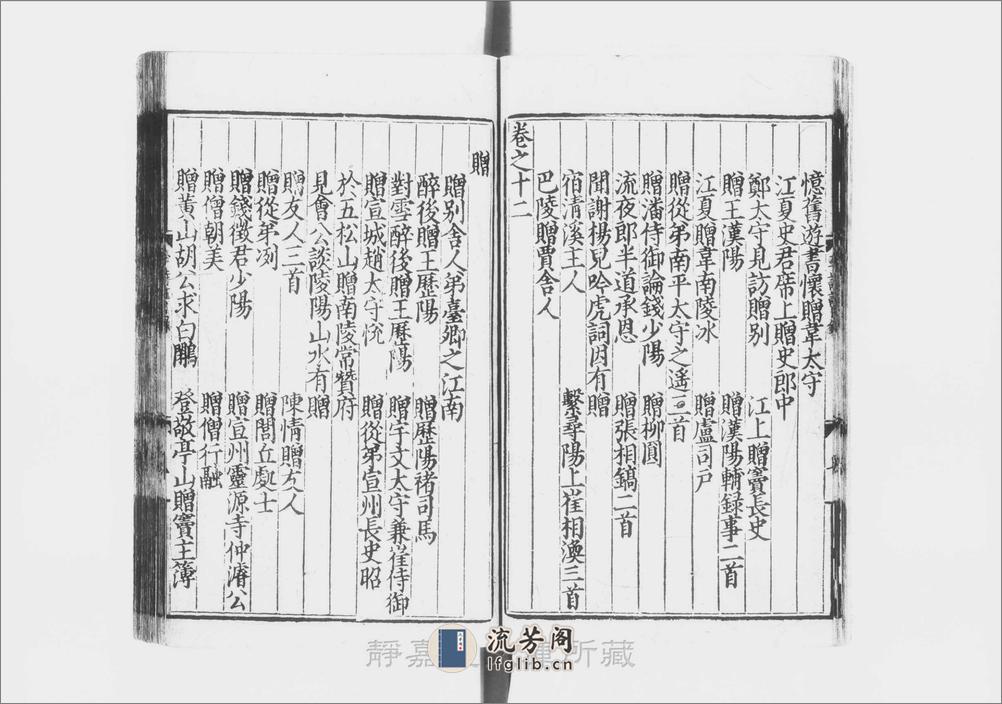 憶舊遊書懷贈韋太守
江夏史君席上贈史郎中
鄭太守見訪贈别 江上贈竇長史
贈王漢陽 贈漢陽輔録事二首
江夏贈韋南陵冰 贈盧司户
贈從弟南平太守之遥二首
贈潘侍御論錢少陽 贈柳圓
流夜郎半道承恩 贈張相鎬二首
聞謝楊兒吟虎詞因有贈
宿清溪王人 繫尋陽上崔相渙三首
巴陵贈賈舍人
卷之十二
贈
贈别舍人弟臺卿之江南
醉後贈王歷陽 贈歷陽褚司馬
對雪醉後贈王歷陽 贈宇文太守兼崔侍御
贈宣城趙太守恱 贈從弟宣州長史昭
於五松山贈南陵常贊府
見會公談陵陽山水有贈
贈友人三首 陳情贈友人
贈從弟冽 贈閭丘處士
贈錢徵君少陽 贈宣州靈源寺仲濬公
贈僧朝美 贈僧行融
贈黄山胡公求白鷳 登敬亭山贈竇主簿
靜嘉 所藏
流芳阁
lfglib.cn